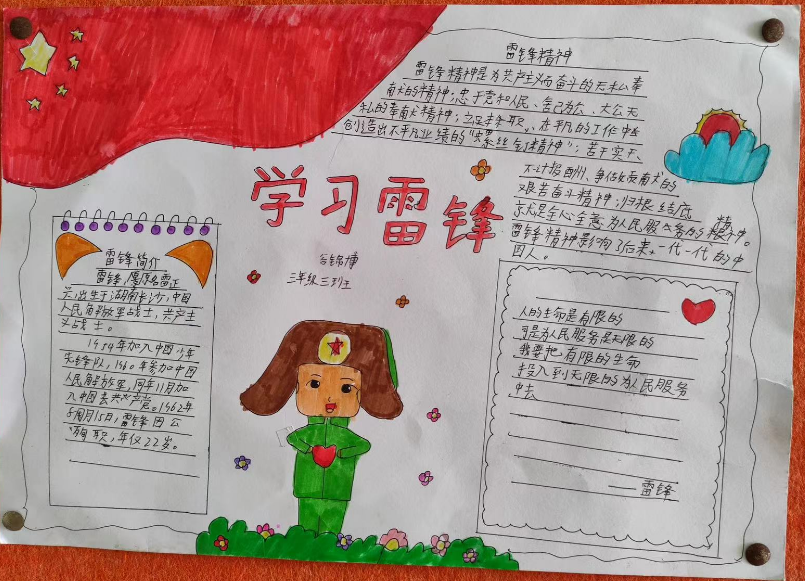 雷锋精神
雷锋精神是为共产主义而奋斗的无私奉
献的精神;忠于党和人民、舍己为公、大公无
私的奉献精神;立足本职、在平凡的工作中
创造出不平凡业绩的"螺丝钉精神";苦干实干、
不计报酬、争做贡献的
艰苦奋斗精神;归根结底
就是全心全意为人民服务的精神。
雷锋精神影响了后来一代一代的中
国人。
学习雷锋
三年级三班
雷锋简介
雷锋,原名雷正
兴,出生于湖南长沙,中国
人民解放军战士,共产主
义战士。
1954年加入中国少年
先锋队,1960年参加中国
人民解放军,同年11月加
入中国共产党。1962年
8月15日,雷锋因公
殉职,年仅22岁。
人的生命是有限的
可是为人民服务是无限的
我要把有限的生命
投入到无限的为人民服务
中去
——雷锋